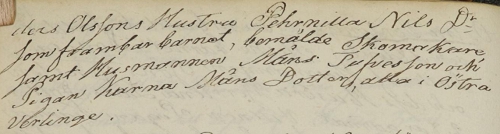 Olssons Hustru Pehrnilla Nils Dr
som frambar barnet, bemälde Skomakare
samt Husmannen Måns Turesson och
Pigan Karna Måns Dotter, alla i Östra
Verlinge.